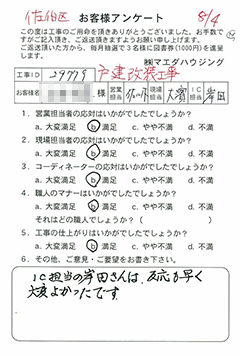 佐伯区 お客様アンケート 8/4
この度は工事のご用命を頂きありがとうございました。お手数で
すがご記入頂き、ご返送頂きますようお願い申し上げます。
ご返送頂いた方から、毎月抽選で3名様に図書券(1000円)を進呈
致します。 ㈱マエダハウジング
工事ID 29779 戸建改装工事
お客様名 様 営業担当 現場担当 大賀 IC担当 岸田
1. 営業担当者の応対はいかがでしたでしょうか?
a. 大変満足 b. 満足 c. やや不満 d. 不満
2. 現場担当者の応対はいかがでしたでしょうか?
a. 大変満足 b. 満足 c. やや不満 d. 不満
3. コーディネーターの応対はいかがでしたでしょうか?
a. 大変満足 b. 満足 c. やや不満 d. 不満
4. 職人のマナーはいかがでしたでしょうか?
a. 大変満足 b. 満足 c. やや不満 d. 不満
それはどの職人でしょうか?( )
5. 工事の仕上がりはいかがでしたでしょうか?
a. 大変満足 b. 満足 c. やや不満 d. 不満
6. その他、ご意見・ご要望をお書き下さい。
IC担当の岸田さんは、反応も早く
大変よかったです。